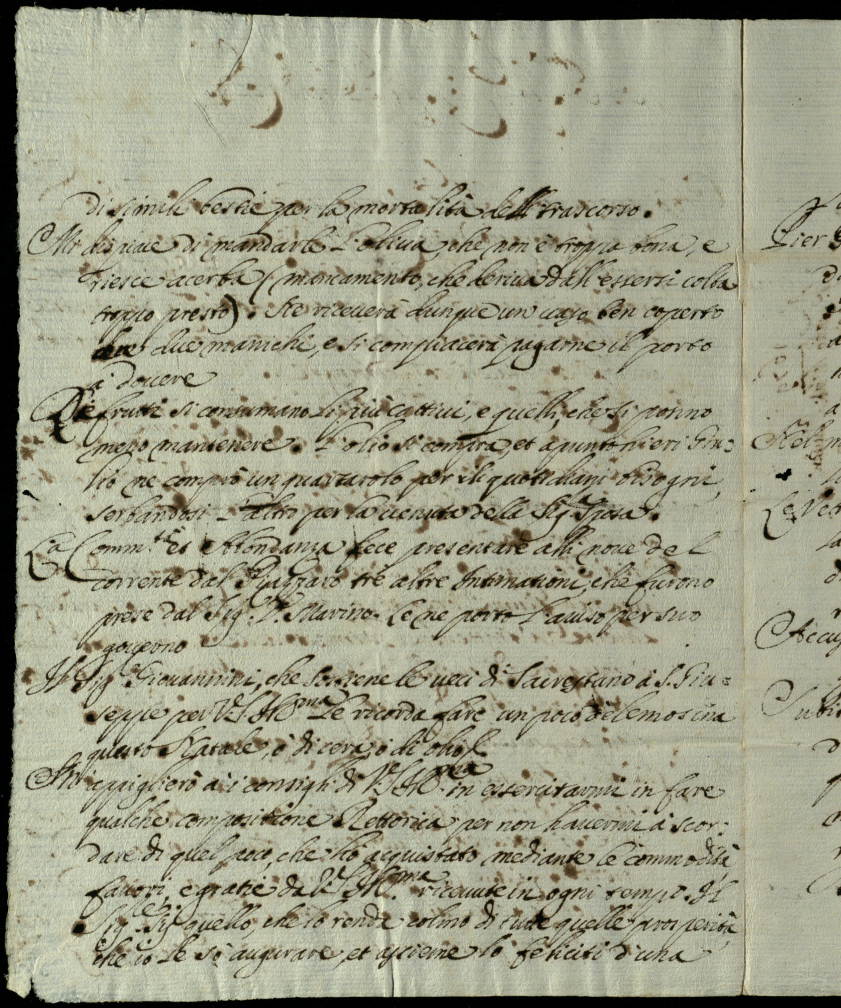 di simili bestie per la mortalità dell trascorso.
Mi dispiace di mandarle l'oliva, che non è troppa bona, e
riesce acerba (mancamento, che deriva dall'essersi colta
troppo presto). Ne riceverà dunque un vaso ben coperto
due manichi, e si compiacerà pagarne il porto
a' dovere
De frutti si consumano li più cattivi, e quelli, che si ponno
meno mantenere. L'olio si compra, et apunto hieri Giu=
lio ne comprò un quartarolo per li quotidiani bisogni,
serbandosi l'altro per la venuta della Sig.ra Sposa.
La Comm.tà et Abondanza fece presentare alli nove del
corrente dal tre altre Intimationi, che furono
prese dal Sig.r D. Marino. Ce ne porto l'aviso per suo
governo
Il Sig.r Giovannini, che sostiene le veci di Sacrestano à S. Giu=
seppe per V.S. Ill.ma Le ricorda fare un poco d'elemosina
questo Natale, ò di cera, ò di olio
appiglierò a i consigli di V.S. Ill.ma in essercitarmi in fare
qualche compositione Rettorica per non havermi à scor=
dare di quel poco, che hò acquistato mediante le commodità
favori, e gratie da V.S. Ill.ma ricevute in ogni tempo. Il
Sig.re sij quello, che lo renda colmo di tutte quelle prosperità,
che io le sò augurare, et assieme lo feliciti d'una
Pier
Nel
Le
Accu
Subi